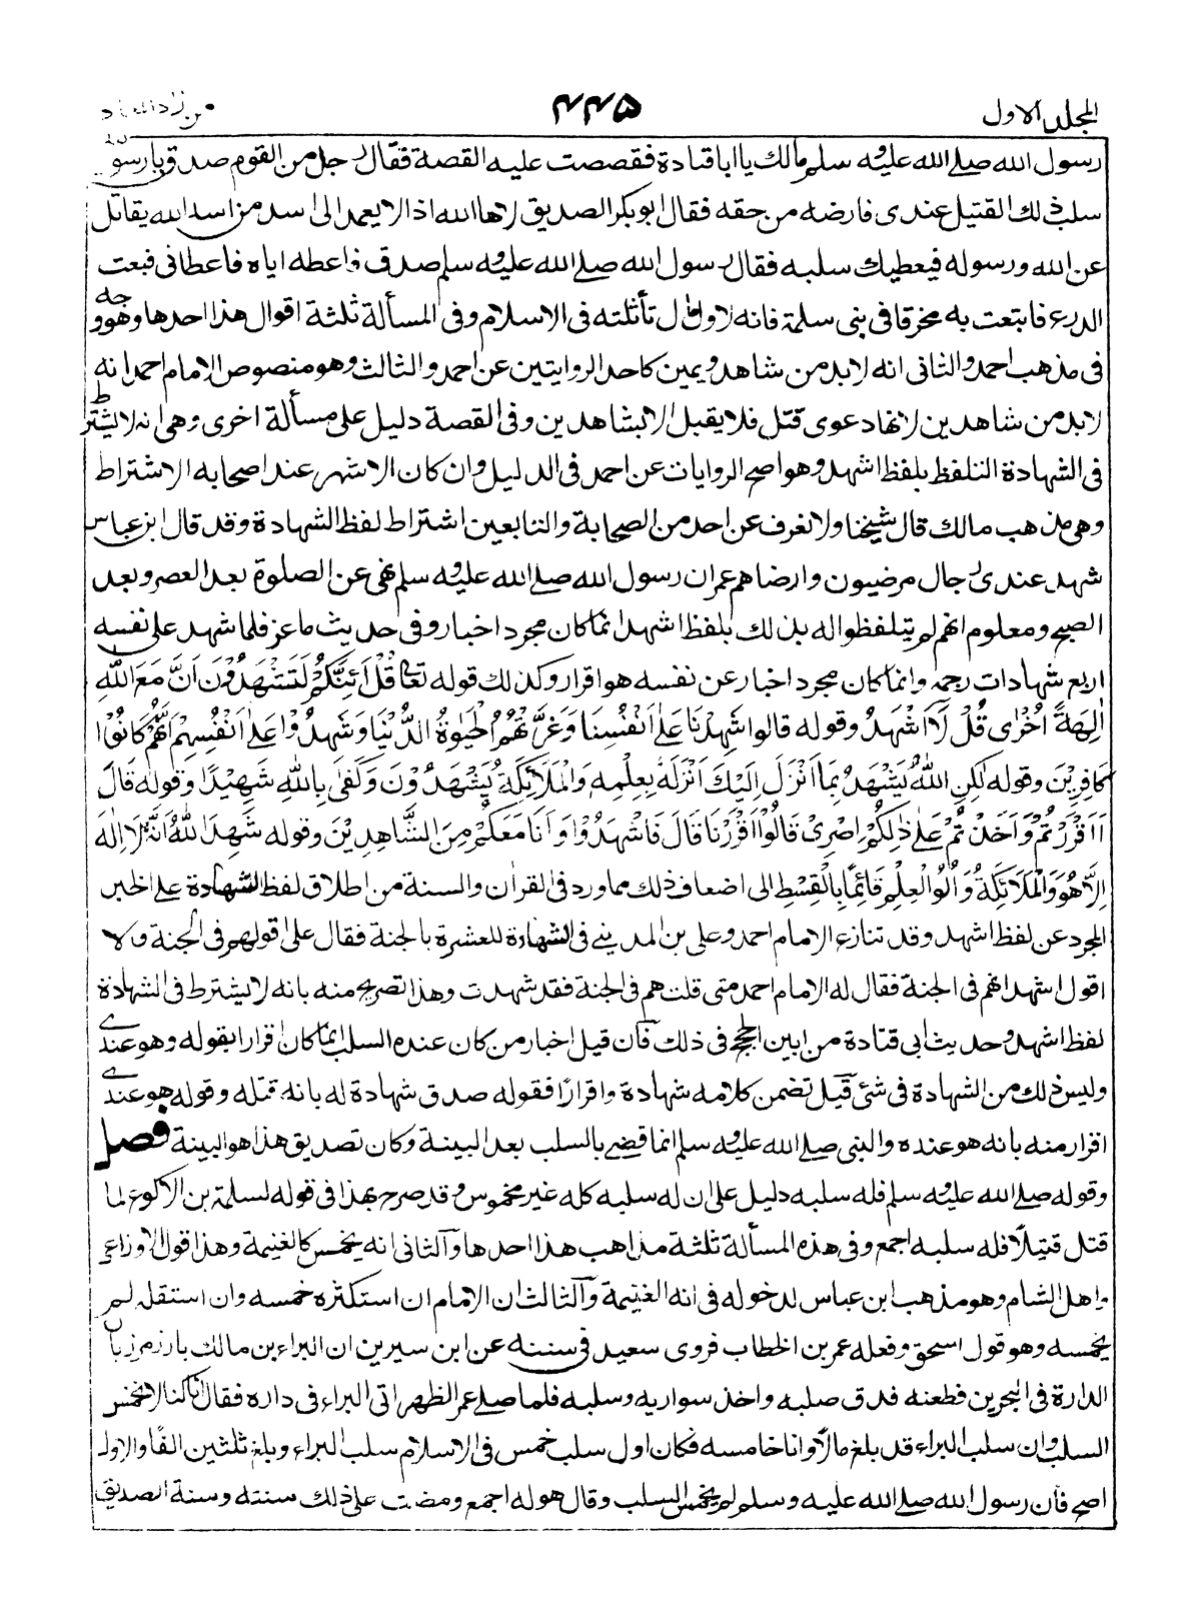 المجلد الاول ۴۴۵ من زاد المعاد
رسول الله صلے الله عليه وسلم مالك يا ابا قتادة فقصصت عليه القصة فقال رجل من القوم صدق يا رسول الله
سلب ذلك القتيل عندى فارضه من حقه فقال ابو بكر الصديق لاها الله اذا لا يعمد الى اسد من اسد الله يقاتل
عن الله ورسوله فيعطيك سلبه فقال رسول الله صلے الله عليه وسلم صدق فاعطه اياه فاعطانى فبعت
الدرع فابتعت به مخرفا فى بنى سلمة فانه لاول مال تأثلته فى الاسلام وفى المسألة ثلثة اقوال هذا احدها وهو وجه
فى مذهب احمد والثانى انه لابد من شاهد ويمين كاحد الروايتين عن احمد والثالث وهو منصوص الامام احمد انه
لابد من شاهدين لانها دعوى قتل فلا يقبل الا بشاهدين وفى القصة دليل على مسألة اخرى وهى انه لا يشترط
فى الشهادة التلفظ بلفظ اشهد وهو اصح الروايات عن احمد فى الدليل وان كان الاشهر عند اصحابه الاشتراط
وهى مذهب مالك قال شيخنا ولا نعرف عن احد من الصحابة والتابعين اشتراط لفظ الشهادة وقد قال ابن عباس
شهد عندى رجال مرضيون وارضاهم عمر ان رسول الله صلے الله عليه وسلم نهى عن الصلوة بعد العصر وبعد
الصبح ومعلوم انهم لم يتلفظوا له بذلك بلفظ اشهد انما كان مجرد اخبار وفى حديث ماعز فلما شهد على نفسه
اربع شهادات رجمه وانما كان مجرد اخبار عن نفسه هو اقرار وكذلك قوله تعا قُلْ اَئِنَّكُمْ لَتَشْهَدُوْنَ اَنَّ مَعَ اللّٰهِ
اٰلِهَةً اُخْرٰى قُلْ لَّا اَشْهَدُ وقوله قالوا شَهِدْنَا عَلٰى اَنْفُسِنَا وَغَرَّتْهُمُ الْحَيٰوةُ الدُّنْيَا وَشَهِدُوْا عَلٰى اَنْفُسِهِمْ اَنَّهُمْ كَانُوْا
كَافِرِيْنَ وقوله لٰكِنِ اللّٰهُ يَشْهَدُ بِمَا اَنْزَلَ اِلَيْكَ اَنْزَلَهٗ بِعِلْمِهٖ وَالْمَلَائِكَةُ يَشْهَدُوْنَ وَكَفٰى بِاللّٰهِ شَهِيْدًا وقوله قَالَ
ءَاَقْرَرْتُمْ وَاَخَذْتُمْ عَلٰى ذٰلِكُمْ اِصْرِىْ قَالُوْا اَقْرَرْنَا قَالَ فَاشْهَدُوْا وَاَنَا مَعَكُمْ مِنَ الشَّاهِدِيْنَ وقوله شَهِدَ اللّٰهُ اَنَّهٗ لَا اِلٰهَ
اِلَّا هُوَ وَالْمَلَائِكَةُ وَاُولُوا الْعِلْمِ قَائِمًا بِالْقِسْطِ الى اضعاف ذلك مما ورد فى القرآن والسنة من اطلاق لفظ الشهادة على الخبر
المجرد عن لفظ اشهد وقد تنازع الامام احمد وعلى بن المدينے فى الشهادة للعشرة بالجنة فقال على اقول هم فى الجنة ولا
اقول اشهد انهم فى الجنة فقال له الامام احمد متى قلت هم فى الجنة فقد شهدت وهذا تصريح منه بانه لا يشترط فى الشهادة
لفظ اشهد وحديث ابى قتادة من ابين الحجج فى ذلك فان قيل اخبار من كان عنده السلب انما كان اقرارا بقوله وهو عندے
وليس ذلك من الشهادة فى شئ قيل تضمن كلامه شهادة واقرارًا فقوله صدق شهادة له بانه قتله وقوله هو عندے
اقرار منه بانه هو عنده والنبى صلے الله عليه وسلم انما قضے بالسلب بعد البينة وكان تصديق هذا هو البينة فصل
وقوله صلے الله عليه وسلم فله سلبه دليل على ان له سلبه كله غير مخموس وقد صرح بهذا فى قوله لسلمة بن الاكوع لما
قتل قتيلًا فله سلبه اجمع وفى هذه المسألة ثلثة مذاهب هذا احدها والثانى انه يخمس كالغنيمة وهذا قول الاوزاعى
واهل الشام وهو مذهب ابن عباس لدخوله فى انه الغنيمة والثالث ان الامام ان استكثره خمسه وان استقله لم
يخمسه وهو قول اسحق وفعله عمر بن الخطاب فروى سعيد فى سننه عن ابن سيرين ان البراء بن مالك بارز مرزبان
الدارة فى البحرين فطعنه فدق صلبه واخذ سواريه وسلبه فلما صلے عمر الظهر اتى البراء فى داره فقال انا كنا لا نخمس
السلب وان سلب البراء قد بلغ مالا وانا خامسه فكان اول سلب خمس فى الاسلام سلب البراء وبلغ ثلثين الفًا والاول
اصح فان رسول الله صلے الله عليه وسلم لم يخمس السلب وقال هو له اجمع ومضت على ذلك سنته وسنة الصديق